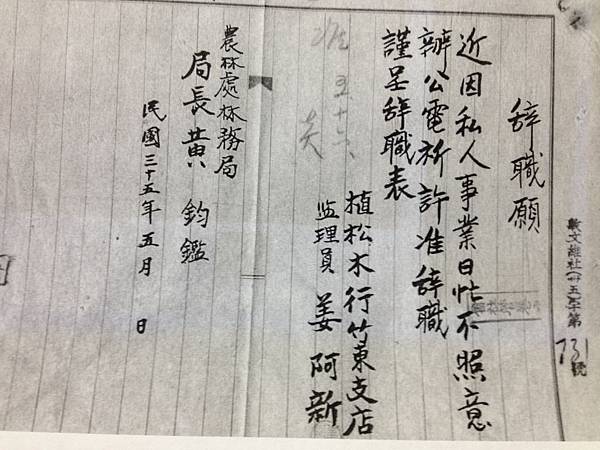 字第731號
辞職願
近因私人事業日忙不照意
辦公電祈許准辞職
謹呈辞職表
植松木行竹東支店
监理員 姜 阿新
農林處林務局
局長黃 鈞鑑
民國三十五年五月 日